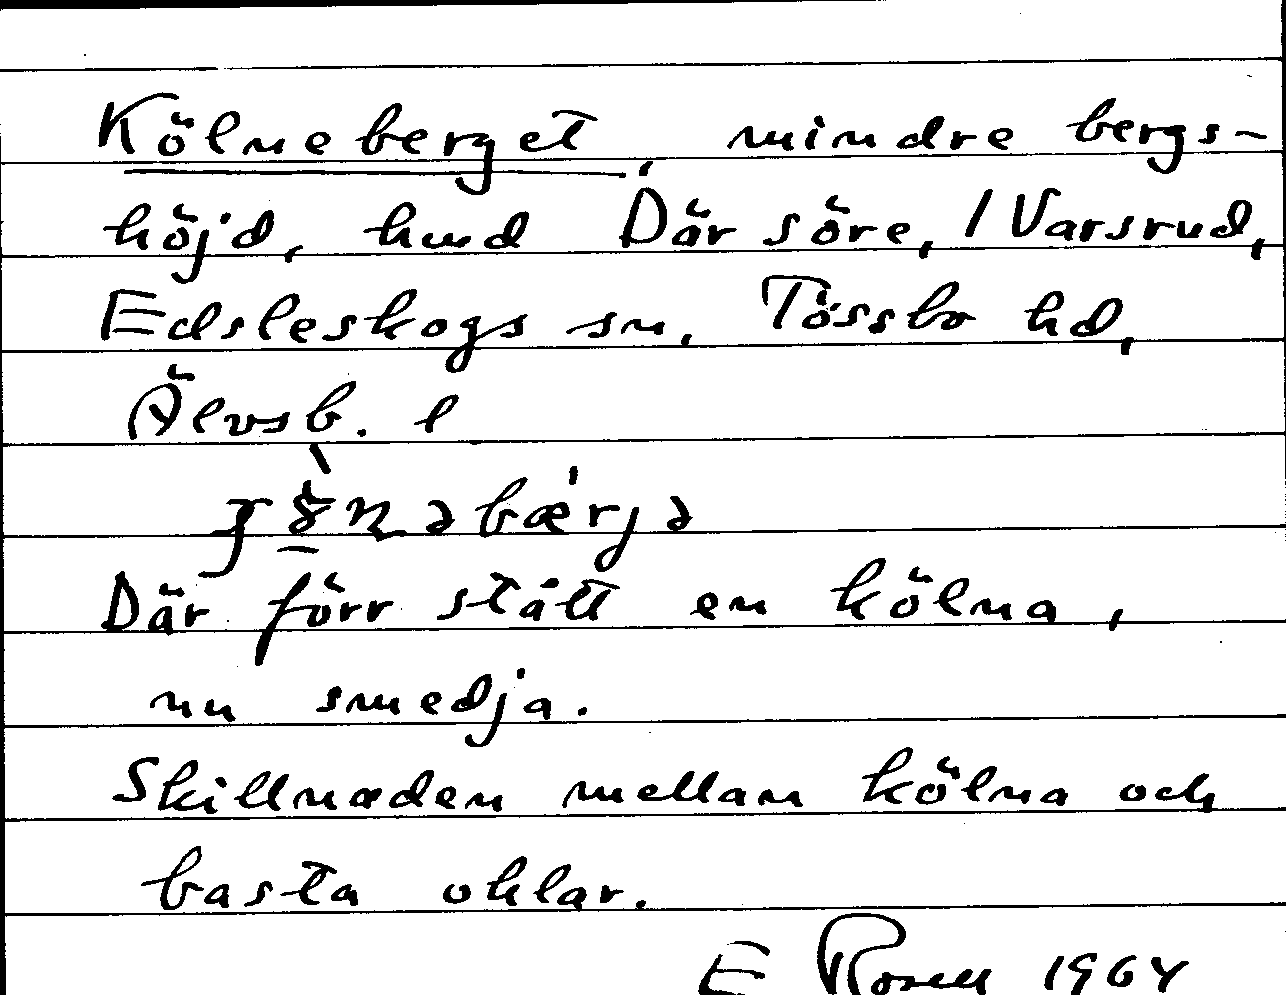 Kölneberget, mindre bergs-
höjd, hmd Där söre, 1 Varsrud,
Edsleskogs sn, Tössbo hd,
Älvsb. l
Där förr stått en kölna,
nu smedja.
Skillnaden mellan kölna och
basta oklar.
E Rosell 1964